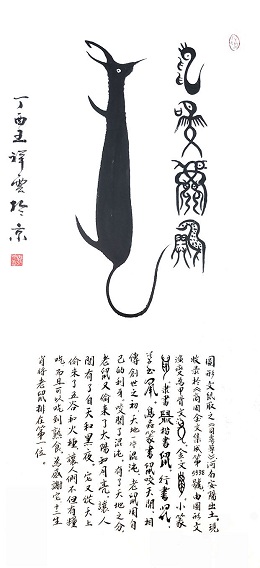 丁酉王祥雲於京
圖形文鼠取之河南安陽出土現
收藏於《商周金文集成》第5538號由圖形文
演變為甲骨文，金文，小篆
隸書鼠楷書行書
草書，鳥蟲篆書鼠咬天開，相
傳創世之初，天地一片混沌，老鼠用自
己的利牙咬開了混沌，有了天地之分，
老鼠又偷來了太陽和月亮，讓人
間有了白天和黑夜，它又從天上
偷來了五谷和火種，讓人們不但有糧
吃而且可以吃到熟食，為感謝它十二生
肖將老鼠排在第一位。